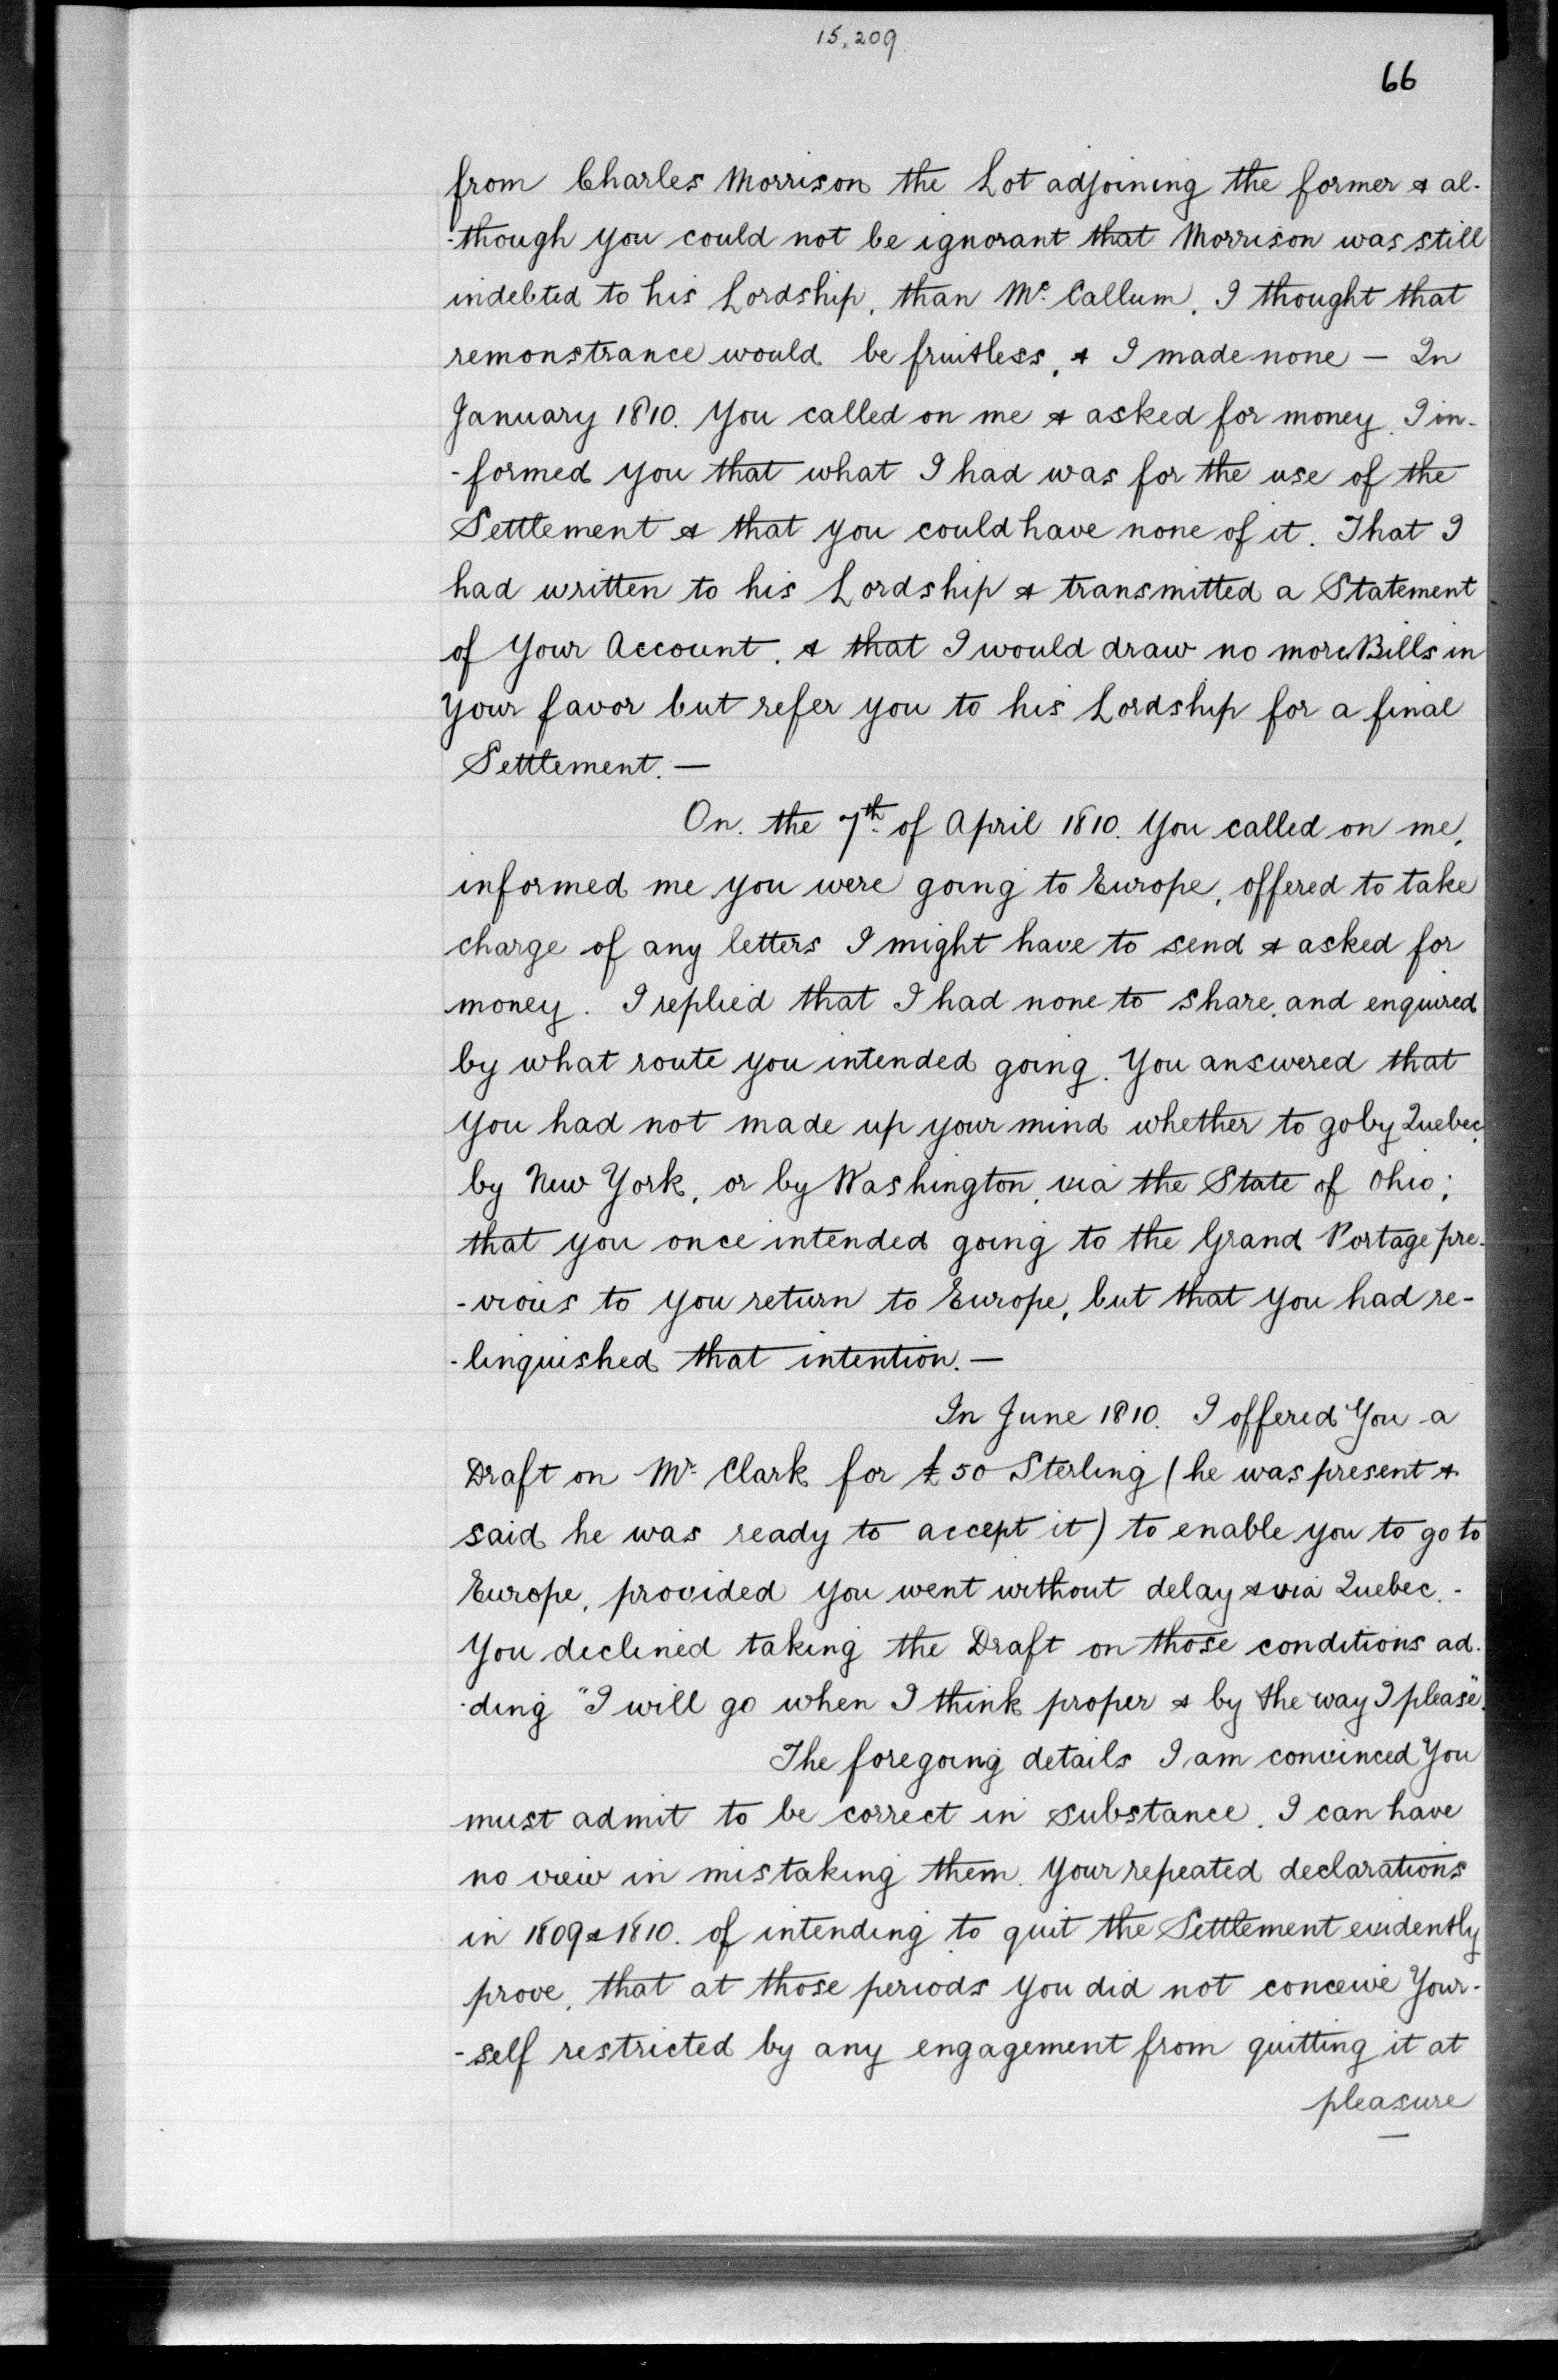 15,209
66
from Charles Morrison the Lot adjoining the former & al-
-though you could not be ignorant that Morrison was still
indebted to his Lordship, than Mc. Callum, I thought that
remonstrance would be fruitless, & I made none — In
January 1810. You called on me & asked for money. I in-
-formed you that what I had was for the use of the
Settlement & that you could have none of it. That I
had written to his Lordship & transmitted a Statement
of Your Account, & that I would draw no more Bills in
Your favor but refer you to his Lordship for a final
Settlement. —
On. the 7th. of April 1810. You called on me,
informed me you were going to Europe, offered to take
charge of any letters I might have to send & asked for
money. I replied that I had none to share, and enquired
by what route you intended going. You answered that
You had not made up your mind whether to go by Quebec,
by New York, or by Washington, via the State of Ohio;
that you once intended going to the Grand Portage pre-
-vious to you return to Europe, but that you had re-
-linquished that intention. —
In June 1810. I offered You a
Draft on Mr. Clark for £50 Sterling (he was present &
said he was ready to accept it) to enable you to go to
Europe, provided you went without delay & via Quebec. -
You declined taking the Draft on those conditions ad-
-ding "I will go when I think proper & by the way I please".
The foregoing details I am convinced You
must admit to be correct in substance. I can have
no view in mistaking them. Your repeated declarations
in 1809 & 1810. of intending to quit the Settlement evidently
prove, that at those periods you did not conceive Your-
-self restricted by any engagement from quitting it at
pleasure